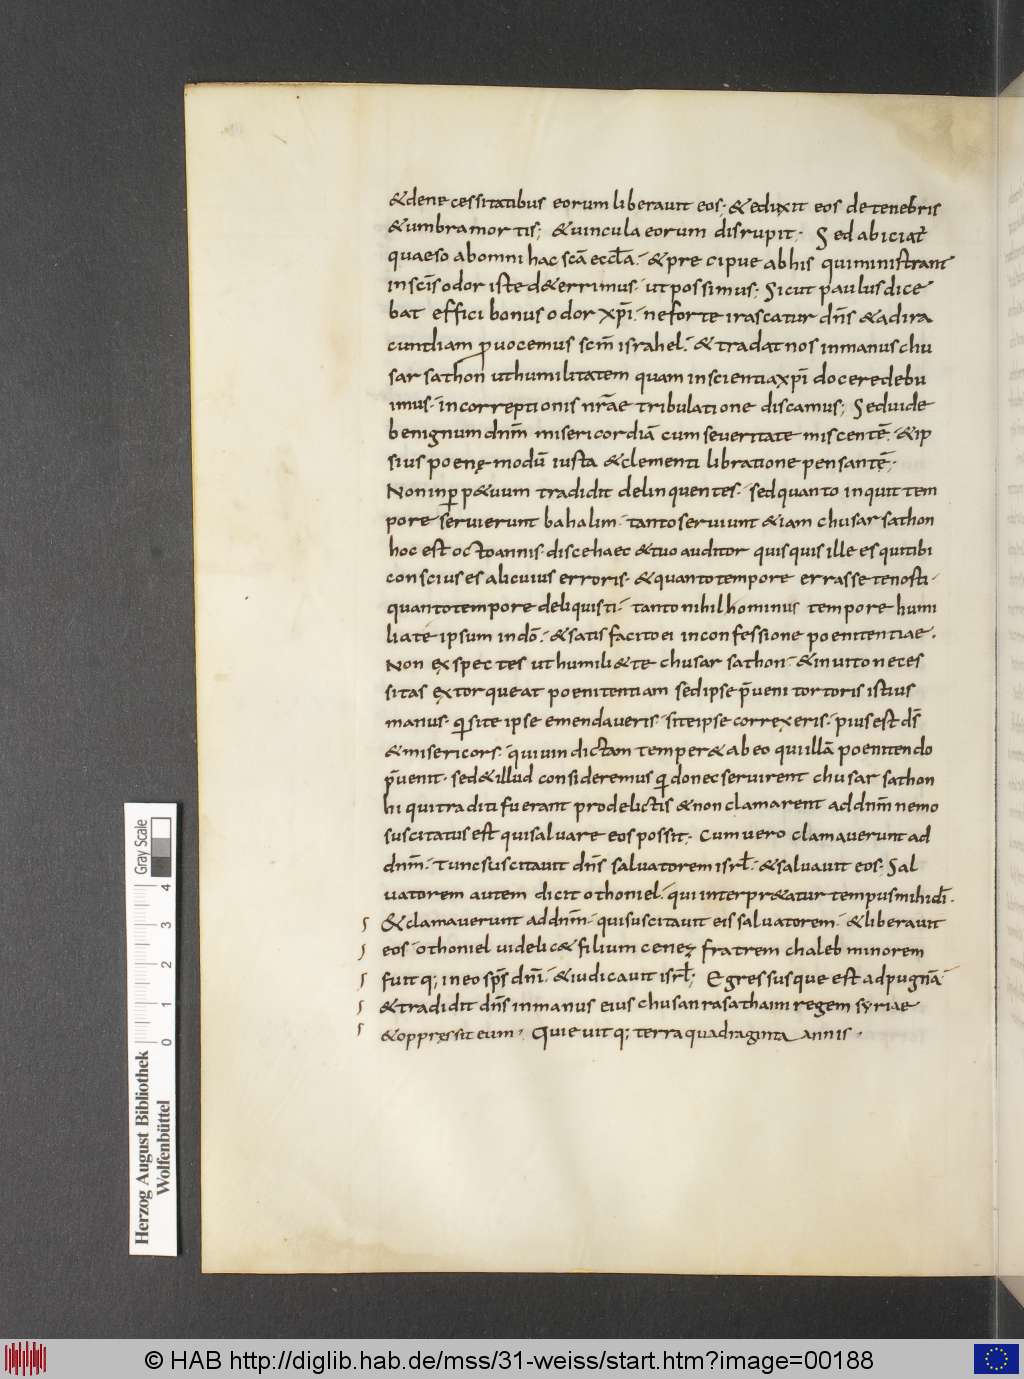 &denecessitatibus eorum liberauit eos; & eduxit eos detenebris
& umbramortis; & uincula eorum disrupit· Sed abiciat̄
quaeso abomni hac scā ecclā· & precipue abhis quiministrant
inscīs odor iste d&errimus· ut possimus; Sicut paulus dice
bat effici bonus odor xp̄i· neforte irascatur dn̄s & adira
cundiam ꝓuocemus scm̄ israhel· & tradat nos inmanus chu
sar sathon ut humilitatem quam inscientia xp̄i docere debu
imus· in correptionis nr̄ae tribulatione discamus; Sed uide
benignum dnm̄ misericordiā cum seueritate miscentē· & ip
sius poenę modū iusta & clementi libratione pensantē·
Non inꝑp&uum tradidit delinquentes· sed quanto inquit tem
pore seruierunt bahalim· tanto seruiunt & iam chusar sathon
hoc est octo annis· disce haec & tu o auditor quisquis ille es qui tibi
conscius es alicuius erroris· & quanto tempore errasse te nosti·
quanto tempore deliquisti· tanto nihilhominus tempore humi
lia te ipsum indō· & satis facito ei in confessione poenitentiae·
Non exspectes ut humili& te chusar sathon· & inuito neces
sitas extorqueat poenitentiam sed ipse p̄ueni tortoris istius
manus· qͥ si te ipse emendaueris· si te ipse correxeris· pius est dŝ
& misericors· qui uindictam temper& ab eo qui illā poenitendo
p̄uenit· sed & illud consideremus qͥ donec seruirent chusar sathon
hi qui traditi fuerant pro delictis & non clamarent ad dnm̄ nemo
suscitatus est qui saluare eos possit· Cum uero clamauerunt ad
dnm̄· tunc suscitauit dn̄s saluatorem isrł· & saluauit eos· Sal
uatorem autem dicit othoniel· qui interpr&atur tempus mihi di·
& clamauerunt ad dnm̄· qui suscitauit eis saluatorem· & liberauit
eos· Othoniel uidelic& filium cenez fratrem chaleb minorem
fuitq; in eo sp̄s dn̄i· & iudicauit isrł; Egressusque est ad pugnā·
& tradidit dn̄s in manus eius chusanrasathaim regem syriae
& oppressit eum· Quieuitq; terra quadraginta annis·
Gray Scale
0 1 2 3 4
Herzog August Bibliothek
Wolfenbüttel
© HAB http://diglib.hab.de/mss/31-weiss/start.htm?image=00188